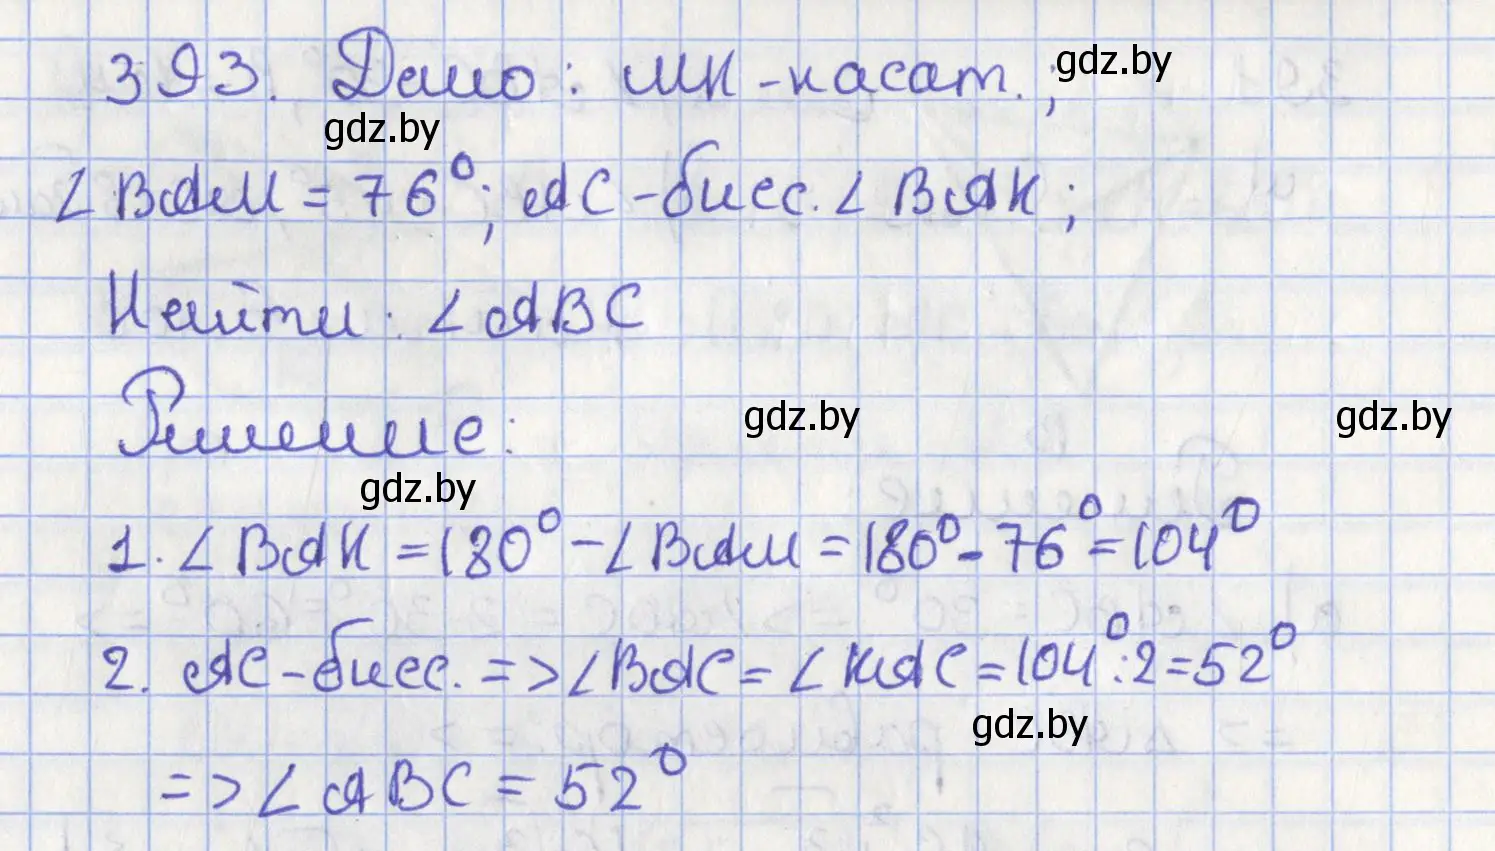 393. Дано: МК - касат.; gdz.by
gdz.by
∠BAM = 76°; AC - бисс. ∠BAK;
Найти: ∠ABC
gdz.by gdz.by
Решение:
gdz.by
1. ∠BAK = 180° - ∠BAM = 180° - 76° = 104°
2. AC - бисс. => ∠BAC = ∠KAC = 104° : 2 = 52°
gdz.by
=> ∠ABC = 52°